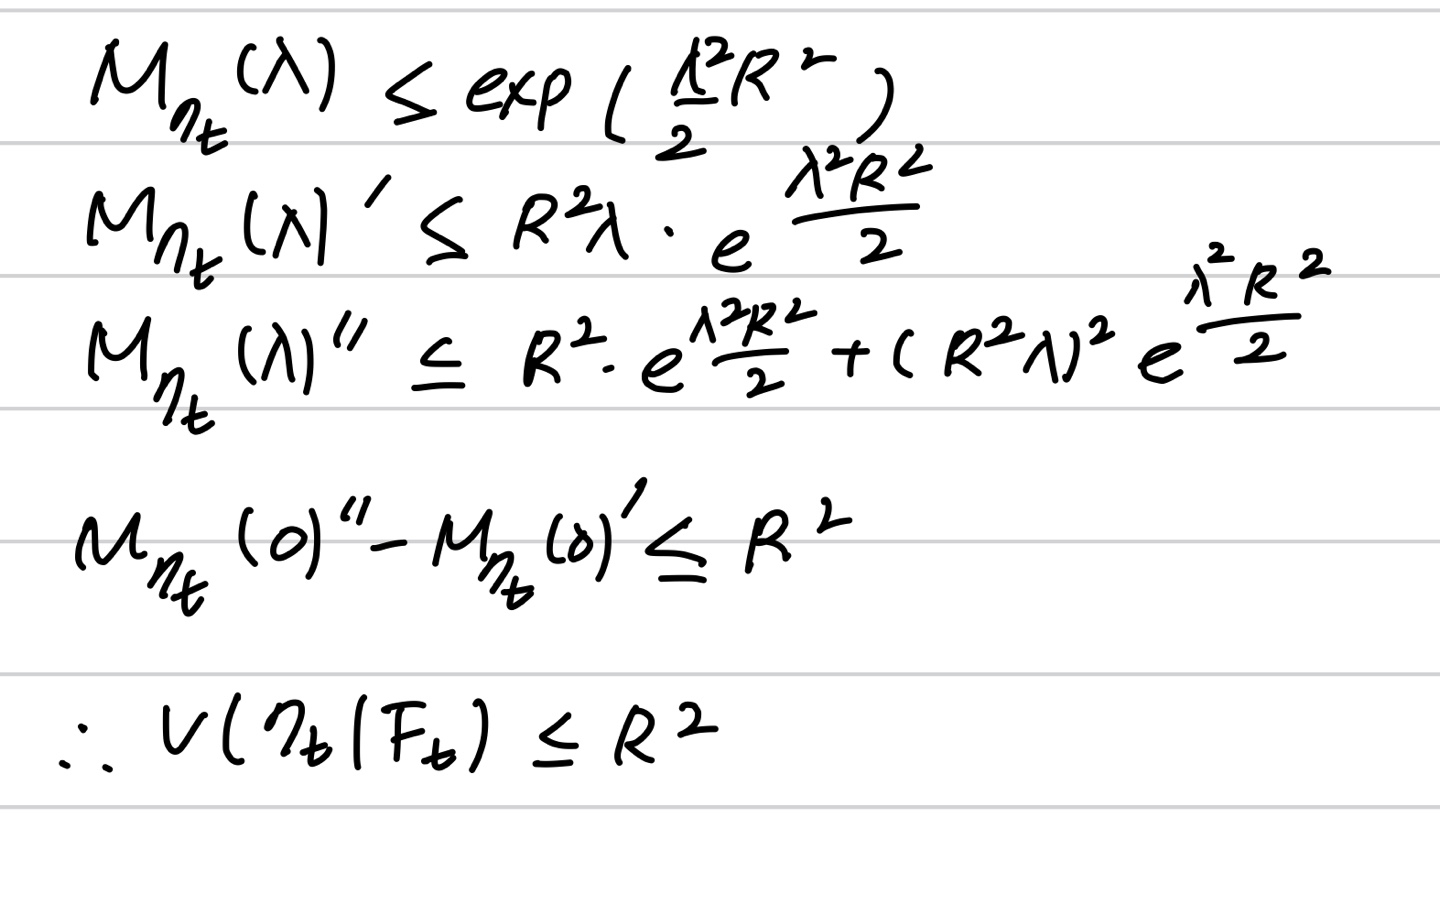 M_{η_t}(λ) ≤ exp(\frac{λ^2}{2}R^2)
M_{η_t}(λ)' ≤ R^2λ · e^{\frac{λ^2R^2}{2}}
M_{η_t}(λ)'' ≤ R^2 · e^{\frac{λ^2R^2}{2}} + (R^2λ)^2 e^{\frac{λ^2R^2}{2}}
M_{η_t}(0)'' - M_{η_t}(0)' ≤ R^2
∴ V(η_t|F_t) ≤ R^2